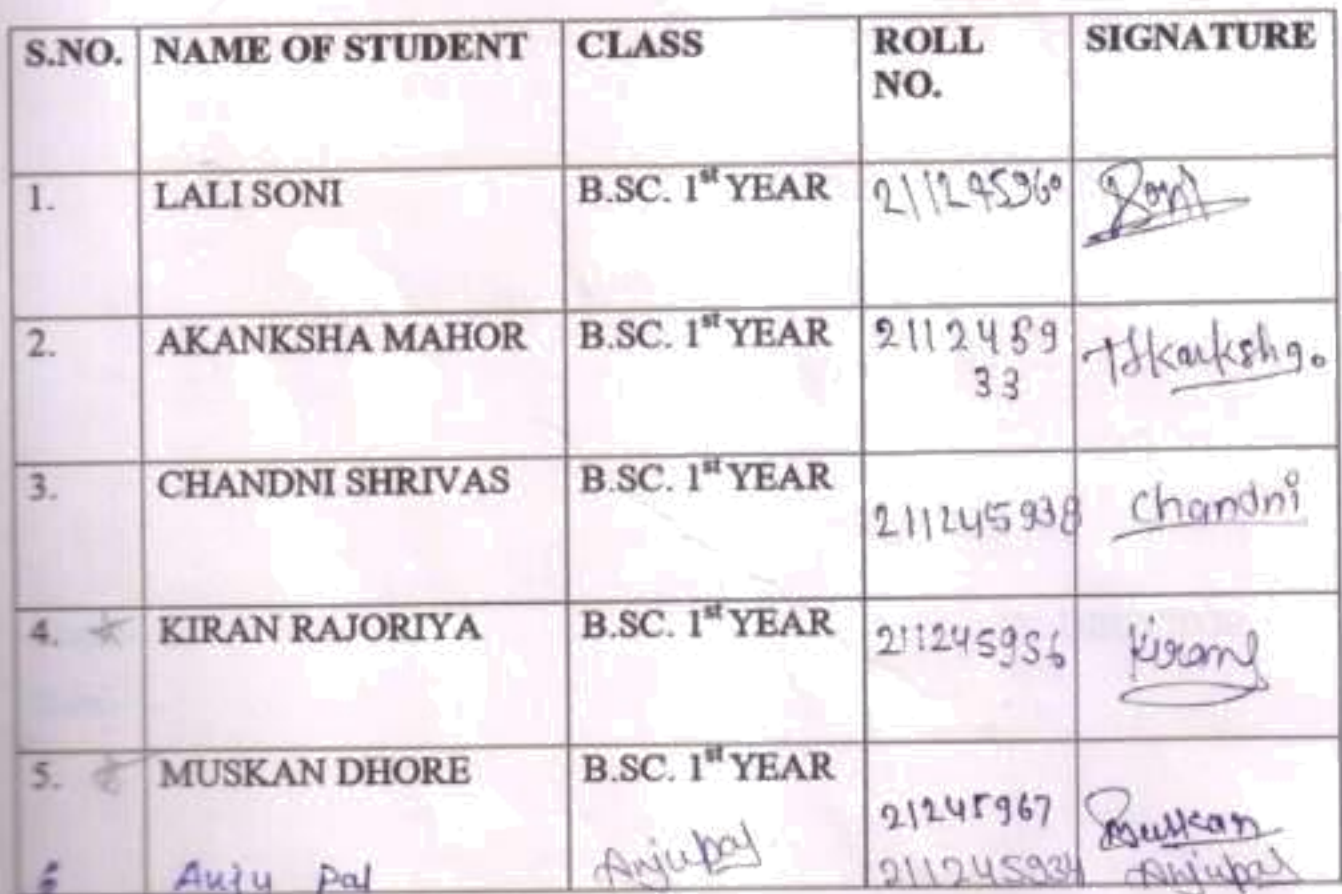 S.NO. NAME OF STUDENT CLASS ROLL NO. SIGNATURE
1. LALI SONI B.SC. 1st YEAR 211245960 Soni
2. AKANKSHA MAHOR B.SC. 1st YEAR 211245933 Akanksha
3. CHANDNI SHRIVAS B.SC. 1st YEAR 211245938 Chandni
4. KIRAN RAJORIYA B.SC. 1st YEAR 211245956 Kiran
5. MUSKAN DHORE B.SC. 1st YEAR 21245967 Muskan
6 Anju Pal Anjupal 211245934 Anjupal